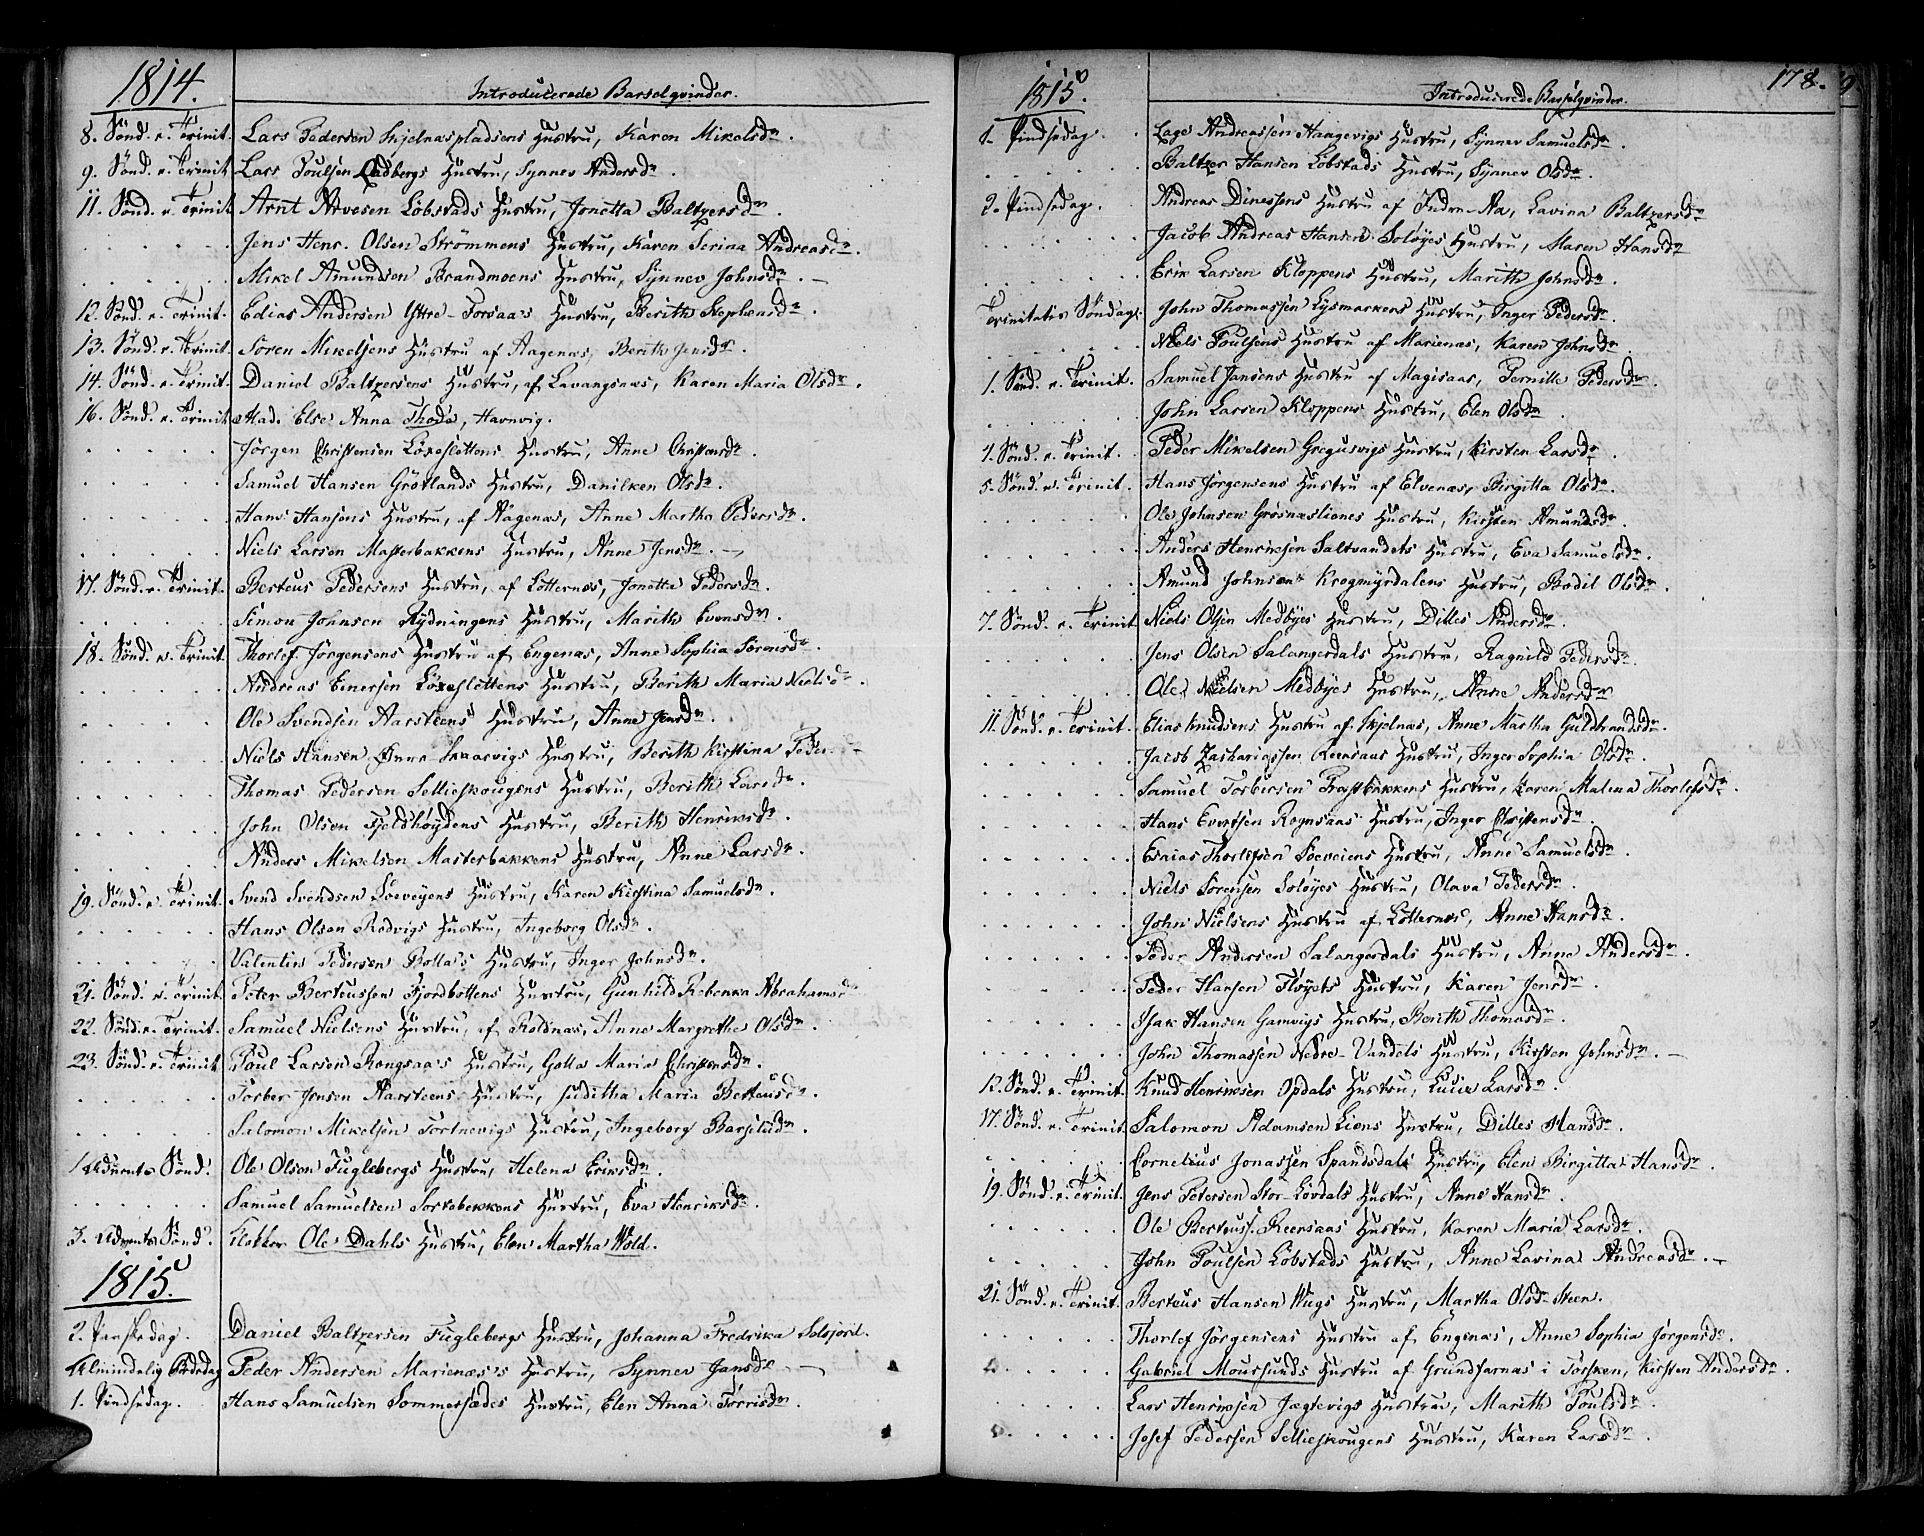 1814.
Introducerede Barselqvinder.
8. Sönd. e. Trinit. Lars Pedersen Skjelnæspladsens Hustru, Karen Mikelsdr.
9. Sönd. e. Trinit. Lars Poulsen Ladbergs Hustru, Synnev Andersdr.
11. Sönd. e. Trinit. Arnt Arvesen Löbstads Hustru, Jonetta Baltzersdr.
Jens Henr. Olsen Strömmens Hustru, Karen Serina Andreasdr.
Mikel Amundsen Brandmoens Hustru, Synnev Johnsdr.
12. Sönd. e. Trinit. Edias Andersen Yttre-Forsaa's Hustru, Berith Stephensdr.
13. Sönd. e. Trinit. Sören Mikelsens Hustru af Aagenæs, Berith Jensdr.
14. Sönd. e. Trinit. Daniel Baltzersens Hustru, af Lavangsnæs, Karen Maria Olsdr.
16. Sönd. e. Trinit. Mad. Else Anna Thode, Havnvig.
Jörgen Christensen Löxeslettens Hustru, Anne Christensdr.
Samuel Hansen Grötlands Hustru, Danilken Olsdr.
Hans Hansens Hustru, af Aagenæs, Anne Martha Pedersdr.
Niels Larsen Masterbakkens Hustru, Anne Jensdr.
17. Sönd. e. Trinit. Berteus Pedersens Hustru, af Lotternæs, Jonetta Pedersdr.
Simon Johnsen Rydningens Hustru, Marith Evensdr.
18. Sönd. e. Trinit. Thorlef Jörgensens Hustru af Engenæs, Anne Sophia Sörensdr.
Andreas Einersen Löxeslettens Hustru, Berith Maria Nielsdr.
Ole Svendsen Aarsteens Hustru, Anne Jensdr.
Niels Hansen Övre-Skaarvigs Hustru, Berith Kirstina Peder
Thomas Pedersen Sellieskougens Hustru, Berith Larsdr.
John Olsen Fjeldhöydens Hustru, Berith Henriksdr.
Anders Mikelsen Masterbakkens Hustru, Anne Larsdr.
19. Sönd. e. Trinit. Svend Svendsen Soeveyens Hustru, Karen Kirstina Samuelsdr.
Hans Olsen Rodvigs Hustru, Ingeborg Olsdr.
Valentin Pedersen Botta's Hustru, Inger Johnsdr.
21. Sönd. e. Trinit. Peter Berteussen Fjordbottens Hustru, Gunhild Rebekka Abrahamsd
22. Sönd. e. Trinit. Samuel Nielsens Hustru, af Roldnæs, Anne Margrethe Olsdr.
23. Sönd. e. Trinit. Poul Larsen Rongsaa's Hustru, Golla Maria Christensdr.
Torber Jensen Aarsteens Hustru, Juditha Maria Berteusdr.
Salomon Mikelsen Tortnevigs Hustru, Ingeborg Barsiludr.
1. Advents Sönd. Ole Olsen Fuglebergs Hustru, Helena Eriksdr.
Samuel Samuelsen Sortebekkens Hustru, Eva Henriksdr.
3. Advents Sönd. Klokker Ole Dahls Hustru, Elen Martha Wold.
1815.
2. Paaskedag. Daniel Baltzersen Fuglebergs Hustru, Johanna Fredrika Solsjord.
Almindelig Bededag Peder Andersen Marienæs's Hustru, Synnev Jansdr.
1. Pindsedag. Hans Samuelsen Sommersædes Hustru, Elen Anna Torrisdr.
1815.
Introducerede Barselqvinder.
178.
1. Pindsedag. Lage Andreassen Haagevigs Hustru, Synnev Samuelsdr.
Baltzer Hansen Löbstads Hustru, Synnev Olsdr.
2. Pindsedag. Andreas Dinessens Hustru af Indre-Aa, Lavina Baltzersdr.
Jacob Andreas Hansen Soløyes Hustru, Maren Hansdr
Erik Larsen Kloppens Hustru, Marith Johnsdr.
Trinitatis Söndag. John Thomassen Lysmarkens Hustru, Inger Pedersdr.
Niels Poulsens Hustru af Marienæs, Karen Johnsdr.
1. Sönd. e. Trinit. Samuel Jansens Hustru af Magisaas, Pernille Pedersdr.
John Larsen Kloppens Hustru, Elen Olsdr.
4. Sönd. e. Trinit. Peder Mikelsen Gregusvigs Hustru, Kirsten Larsdr.
5. Sönd. e. Trinit. Hans Jörgensens Hustru af Elvenæs, Birgitta Olsdr.
Ole Johnsen Grösnæsliones Hustru, Kirsten Amundsdr.
Anders Henriksen Saltvandets Hustru, Eva Samuelsdr.
Amund Johnsens Krogmyrdalens Hustru, Bodil Olsdr.
7. Sönd. e. Trinit Niels Olsen Medbyes Hustru, Dilles Andersdr.
Jens Olsen Salangerdals Hustru, Ragnild Pedersdr.
Ole Nielsen Medbyes Hustru, Anne Andersdr
11. Sönd. e. Trinit. Elias Knudsens Hustru af Skjelnæs, Anne Martha Guldbrandsdr.
Jacob Zachariassen Reensaas Hustru, Inger Sophia Olsdr.
Samuel Torbersen Prastbakkens Hustru, Karen Malena Thorlefsdr.
Hans Evertsen Rognsaas Hustru, Inger Christensdr.
Esaias Thorlefsen Soeveiens Hustru, Anne Samuelsdr.
Niels Sörensen Soløyes Hustru, Olava Pedersdr.
John Nielsens Hustru af Lotternæs, Anne Hansdr.
Peder Andersen Salangerdals Hustru, Anne Andersdr.
Peder Hansen Fløyets Hustru, Karen Jensdr.
Isak Hansen Gamvigs Hustru, Berith Thomasdr.
John Thomassen Nedre-Vandets Hustru, Kirsten Johnsdr.
12. Sönd. e. Trinit. Knud Henriksen Opdals Hustru, Lucia Larsdr.
17. Sönd. e. Trinit. Salomon Adamsen Lions Hustru, Dilles Hansdr.
Cornelius Jonassen Spandsdals Hustru, Elen Birgitta Hansdr.
19. Sönd. e. Trinit. Jens Petersen Stor-Lövdals Hustru, Anne Hansdr.
Ole Berteuss. Reensaas Hustru, Karen Maria Larsdr.
John Poulsen Löbstads Hustru, Anne Lavina Andreasdr.
21. Sönd. e. Trinit. Berteus Hansen Wugs Hustru, Martha Olsdr Steen.
Thorlef Jörgensens Hustru af Engenæs, Anne Sophia Jörgensdr.
Gabriel Moursunds Hustru af Grundfarnæs i Torsken, Kirsten Andersdr.
Lars Henriksen Jægtevigs Hustru, Marith Poulsdr.
Josef Pedersen Sellieskougens Hustru, Karen Larsdr.